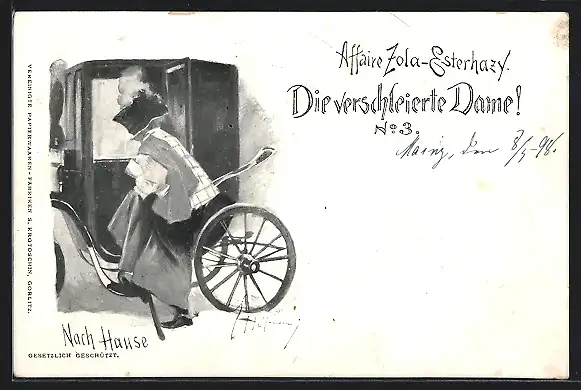 Affaire Zola-Esterhazy.
Die verschleierte Dame!
No 3.
Mainz, den 8/5-98.
VEREINIGTE PAPIERWAAREN-FABRIKEN S. KROTOSCHIN, GÖRLITZ.
Nach Hause
GESETZLICH GESCHÜTZT.